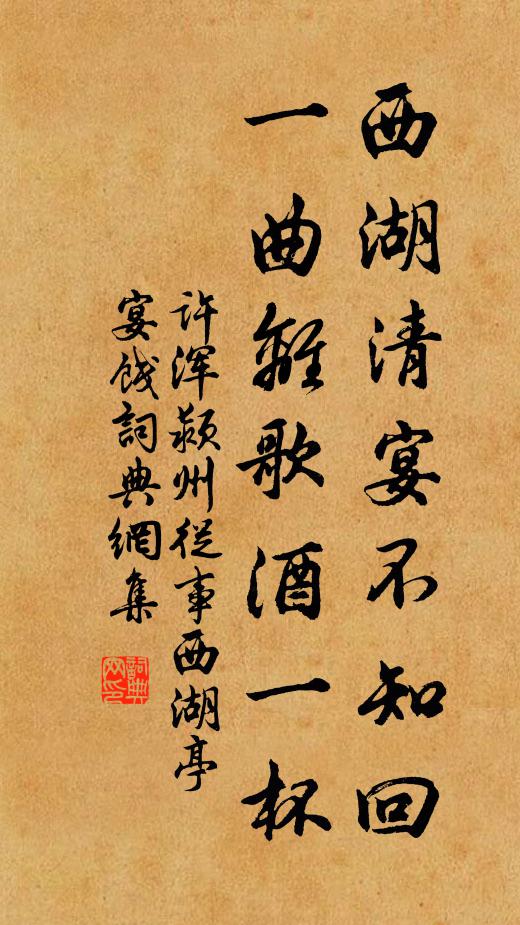 西湖清宴不知回
一曲離歌酒一杯
许浑颍州從事西湖亭
宴餞詞典網集
詞典网印